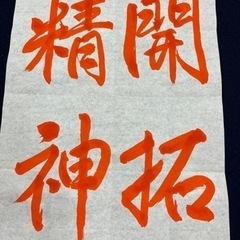 開拓
精神